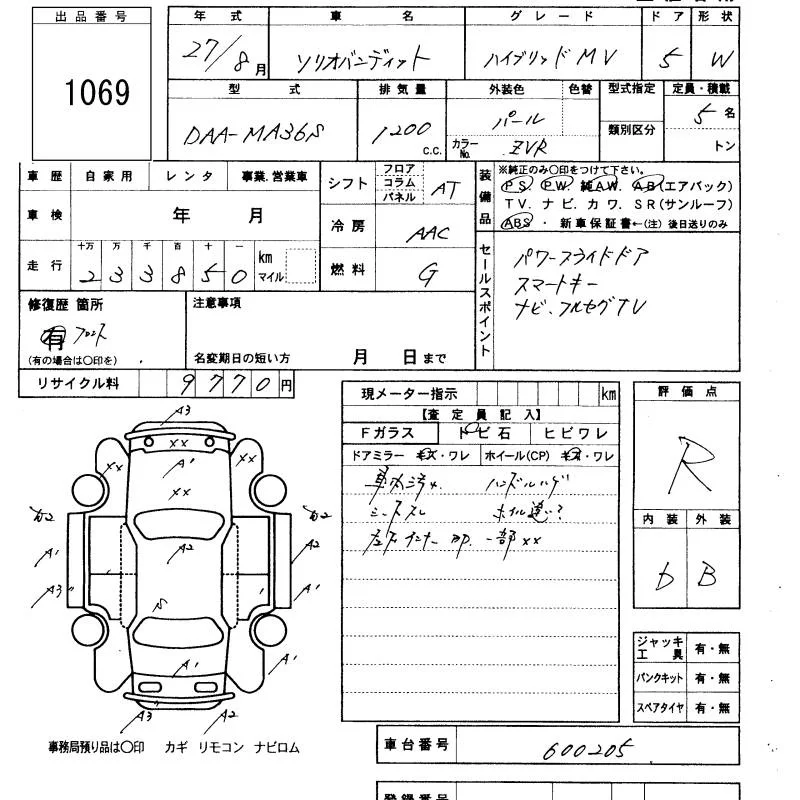 出品番号
1069
年式 車名 グレード ドア 形状
27/8月 ソリオバンディット ハイブリッドMV 5 W
型式 排気量 外装色 色替 型式指定 定員・積載
DAA-MA36S 1200 c.c. パール 類別区分 5名
カラーNo. ZVR トン
車歴 自家用 レンタ 事業.営業車
シフト フロア コラム パネル AT
装備品 ※純正のみ○印をつけて下さい。
PS. PW. 純AW. AB(エアバック)
TV. ナビ. カワ. SR(サンルーフ)
ABS ・ 新車保証書←(注) 後日送りのみ
車検 年 月
冷房 AAC
走行 十万 万 千 百 十 一 km マイル
2 3 3 8 5 0
燃料 G
セールスポイント
パワースライドドア
スマートキー
ナビ、フルセグTV
修復歴 箇所 注意事項
有 フロント
(有の場合は○印を) 名変期日の短い方 月 日まで
リサイクル料 9770円
現メーター指示 km
【査定員記入】
Fガラス トビ石 ヒビワレ
ドアミラー キズ・ワレ ホイール(CP) キズ・ワレ
ハンドルハゲ
シートスレ
一部xx
評価点
R
内装 外装
D B
ジャッキ工具 有・無
パンクキット 有・無
スペアタイヤ 有・無
A3
xx
xx xx
A'
xx
A2
A' A2
A3 A'
S
A'
A'
A3 A2
事務局預り品は○印 カギ リモコン ナビロム
車台番号 600205
登録番号